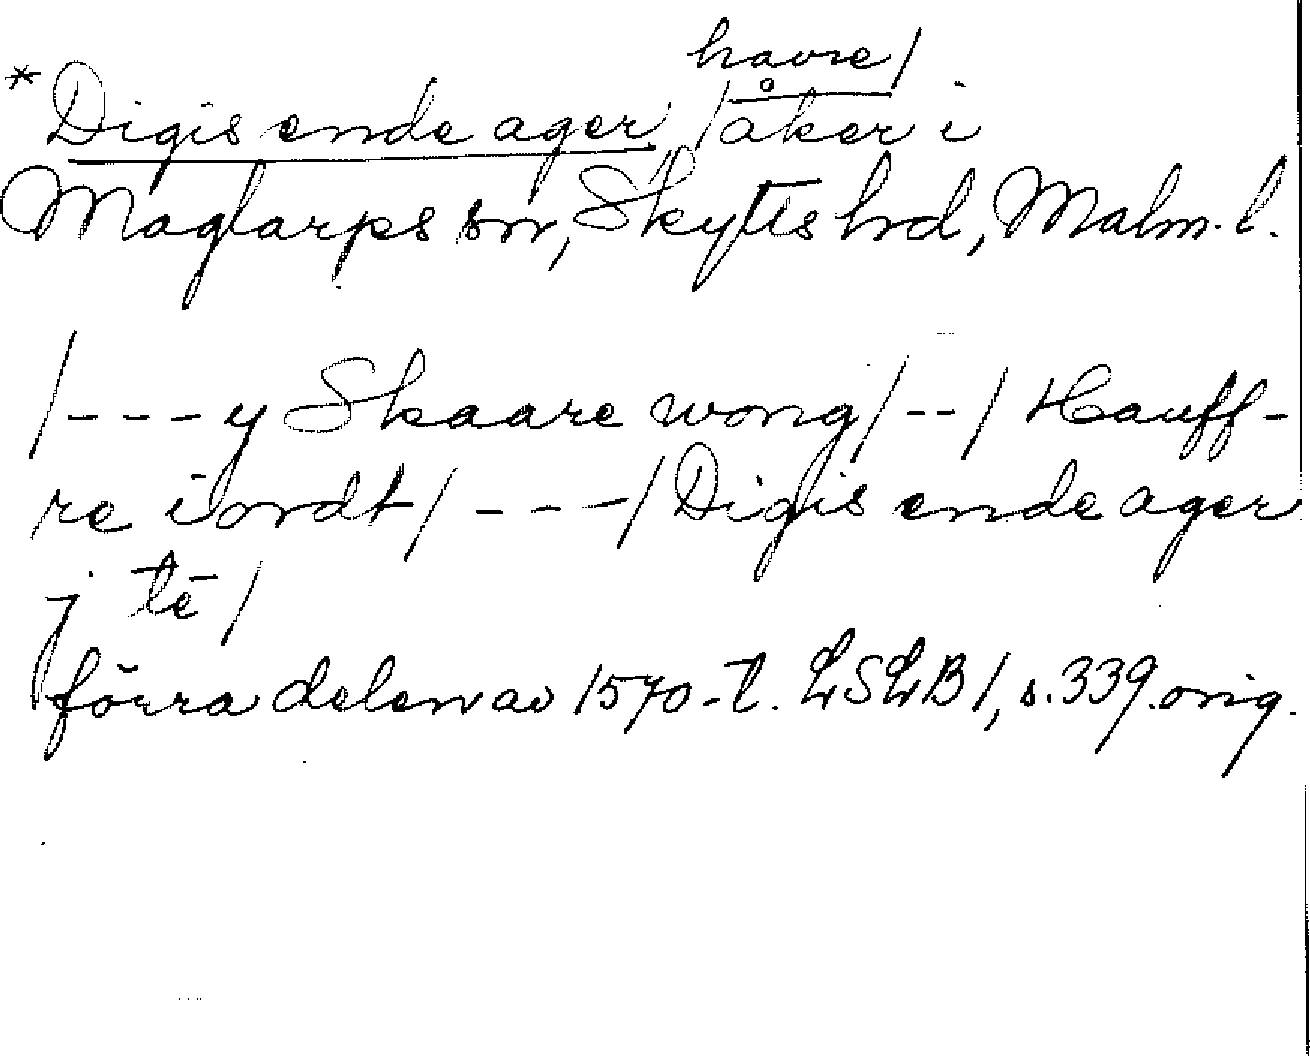 havre/
* Digis ende ager /åker i
Maglarps sn, Skytts hd, Malm. l.
/---y Skaare wong/--/ Hauff-
re iordt/ ---/ Digis ende ager
j tē/
förra delen av 1570-t. LSLB 1, s. 339. orig.